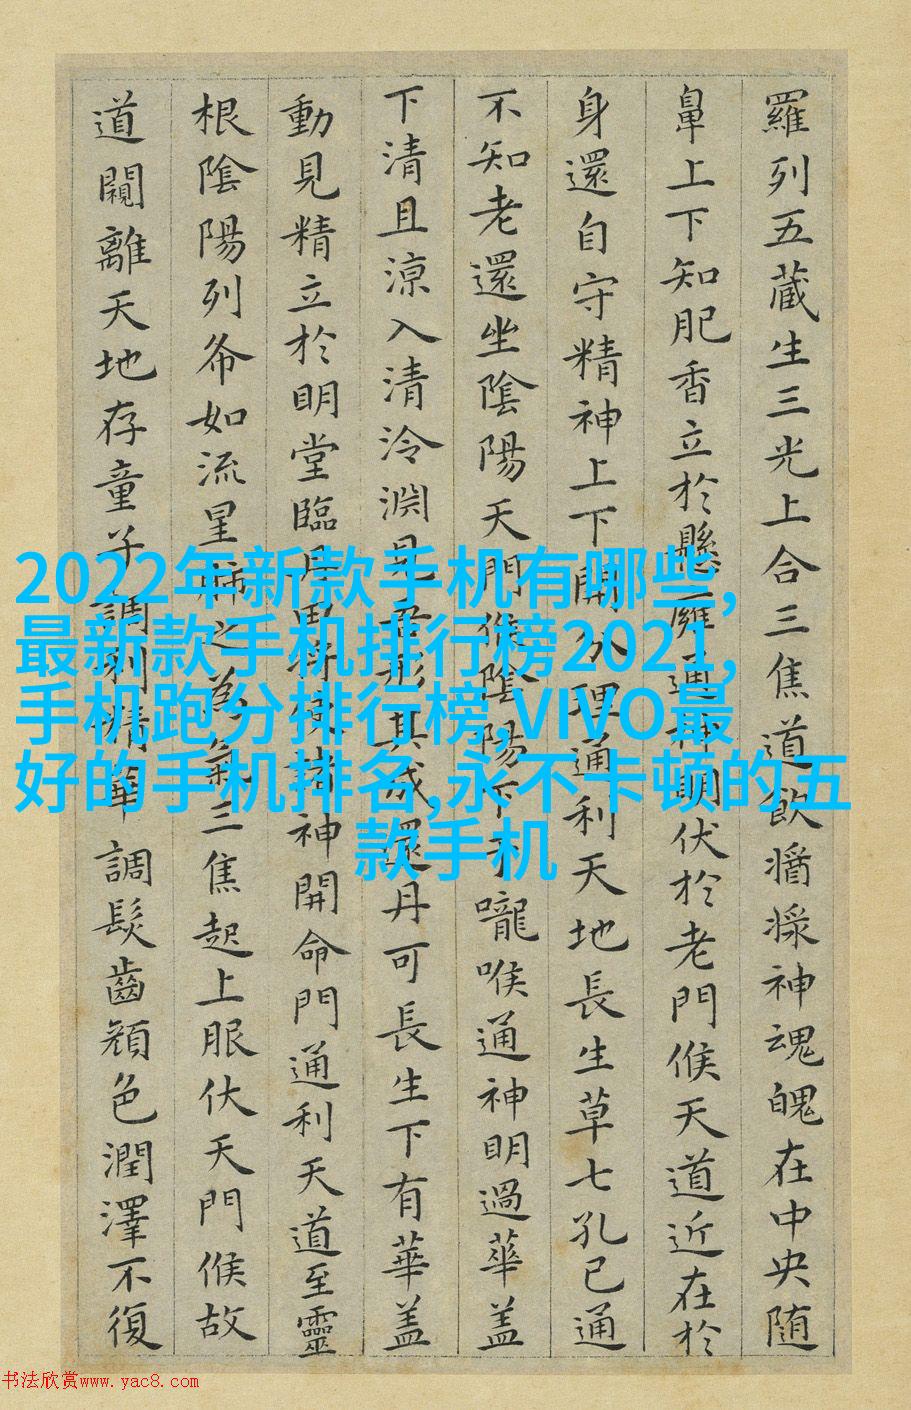 羅列五蔵生三光上合三焦道飲醬漿神魂魄在中央随
鼻上下知肥香立於懸膺通神明伏於老門候天道近在於
身還自守精神上下開分理通利天地長生草七孔已通
不知老還坐陰陽天門候陰陽下于嚨喉通神明過華盖
下清且涼入清泠淵見吾形其成還丹可長生下有華盖
動見精立於明堂臨丹田將使諸神開命門通利天道至靈
根陰陽列布如流星肺之為氣三焦起上服伏天門候故
道闚離天地存童子調利精華調髮齒顔色潤澤不復
2022年新款手机有哪些,
最新款手机排行榜2021,
手机跑分排行榜,VIVO最
好的手机排名,永不卡顿的五
款手机
书法欣赏www.yac8.com